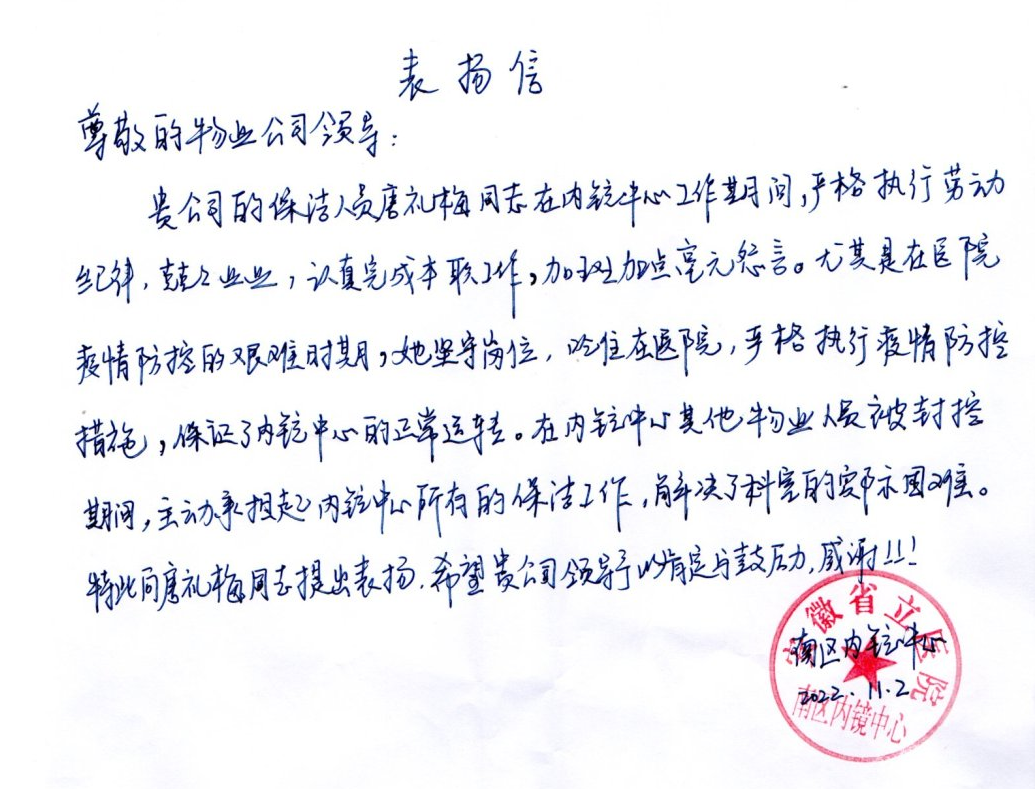 表扬信
尊敬的物业公司领导:
贵公司的保洁人员唐礼梅同志在内镜中心工作期间,严格执行劳动
纪律,兢兢业业,认真完成本职工作,加班加点毫无怨言。尤其是在医院
疫情防控的艰难时期,她坚守岗位,吃住在医院,严格执行疫情防控
措施,保证了内镜中心的正常运转。在内镜中心其他物业人员被封控
期间,主动承担起内镜中心所有的保洁工作,解决了科室的实际困难。
特此向唐礼梅同志提出表扬,希望贵公司领导予以肯定与鼓励,感谢!!!
安徽省立医院
南区内镜中心
2022.11.2
南区内镜中心